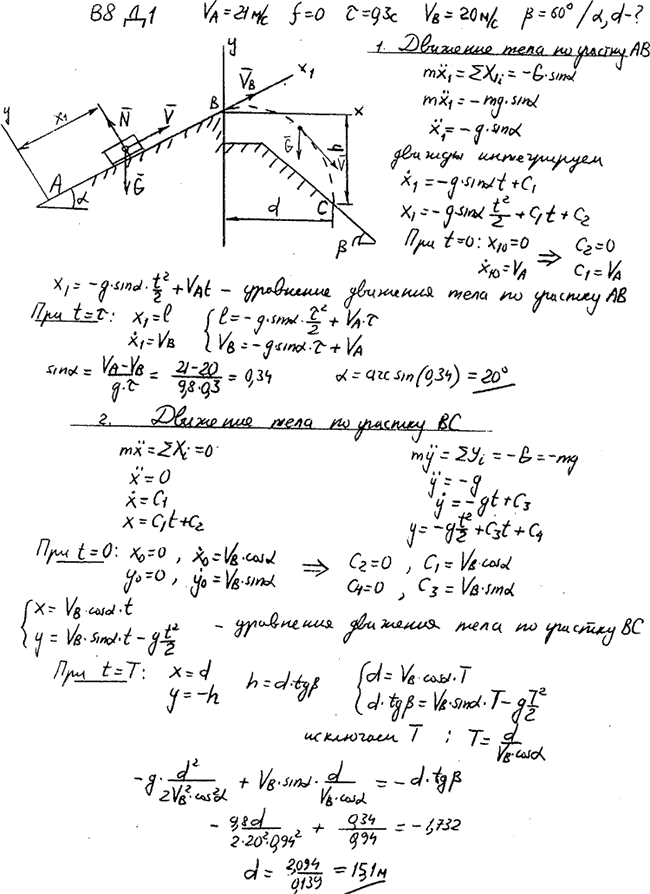 В8 Д1 V_A=21м/с f=0 τ=0,3с V_B=20м/с β=60° / α, d-?
1. Движение тела по участку АВ
mẍ₁=ΣX₁ᵢ=-G·sinα
mẍ₁=-mg·sinα
ẍ₁=-g·sinα
дважды интегрируем
ẋ₁=-g·sinαt+C₁
x₁=-g·sinα t²/2+C₁t+C₂
При t=0: x₁₀=0 ⇒ C₂=0
ẋ₁₀=V_A C₁=V_A
y
x₁
V̄_B
y
x₁
N̄
V̄
B
x
Ḡ
h
V̄
A
α
Ḡ
d
C
β
x₁=-g·sinα·t²/2+V_At – уравнение движения тела по участку АВ
При t=τ: x₁=l { l=-g·sinα·τ²/2+V_A·τ
ẋ₁=V_B V_B=-gsinα·τ+V_A
sinα=(V_A-V_B)/(g·τ)=(21-20)/(9,8·0,3)=0,34 α=arcsin(0,34)=20°
2. Движение тела по участку ВС
mẍ=ΣXᵢ=0 mÿ=ΣYᵢ=-G=-mg
ẍ=0 ÿ=-g
ẋ=C₁ ẏ=-gt+C₃
x=C₁t+C₂ y=-g t²/2+C₃t+C₄
При t=0: x₀=0, ẋ₀=V_B·cosα ⇒ C₂=0, C₁=V_B·cosα
y₀=0, ẏ₀=V_B·sinα C₄=0, C₃=V_B·sinα
{ x=V_B·cosα·t
y=V_B·sinα·t-g t²/2 – уравнения движения тела по участку ВС
При t=T: x=d h=d·tgβ { d=V_B·cosα·T
y=-h d·tgβ=V_B·sinα·T-g T²/2
исключаем T : T=d/(V_B·cosα)
-g·d²/(2V_B²·cos²α) + V_B·sinα·d/(V_B·cosα) = -d·tgβ
-9,8d/(2·20²·0,94²) + 0,34/0,94 = -1,732
d=2,094/0,139=15,1м